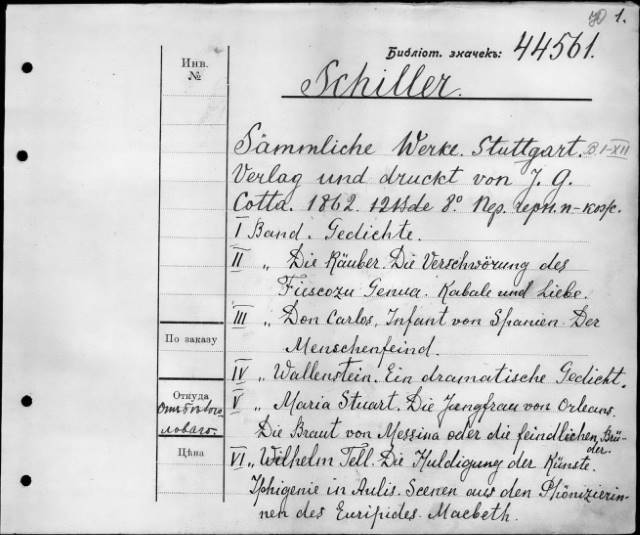 1.
Инв.
№
Библіот. значекъ: 44561.
Schiller.
Sämmliche Werke. Stuttgart. B. I-XII
Verlag und druckt von J. G.
Cotta. 1862. 12 Bde 8° Пер. черн. п-кож.
I Band. Gedichte.
II „ Die Räuber. Die Verschwörung des
Fiescozu Genua. Kabale und Liebe.
III „ Don Carlos, Infant von Spanien. Der
Menschenfeind.
По заказу
IV „ Wallenstein. Ein dramatische Gedicht.
Откуда
V „ Maria Stuart. Die Jungfrau von Orleans.
Die Braut von Messina oder die feindlichen Brü-
der.
Цѣна
VI „ Wilhelm Tell. Die Huldigung der Künste.
Iphigenie in Aulis. Scenen aus den Phönizierin-
nen des Euripides. Macbeth.